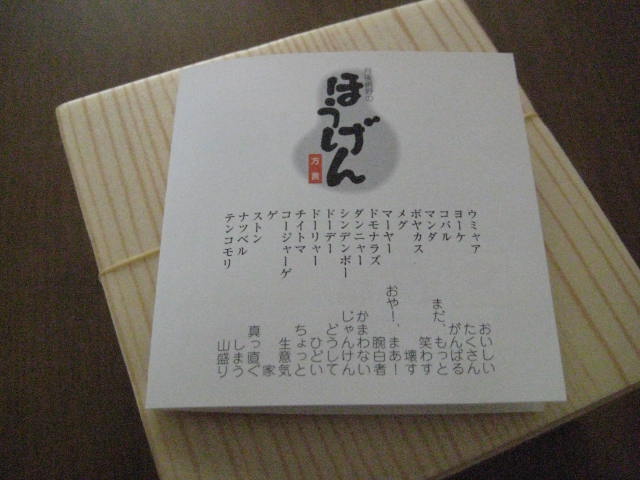 丹後網野の
ほうげん
方言
ウミャア おいしい
ヨーケ たくさん
コバル がんばる
マンダ まだ、もっと
ボヤカス 笑わす
メグ 壊す
マーヤー おや!、まあ!
ドモナラズ 腕白者
ダンニャー かまわない
シンデンボー じゃんけん
ドーデー どうして
ドーリャー ひどい
チイトマ ちょっと
コージャーゲ 生意気
ゲ 家
ストン 真っ直ぐ
ナツベル しまう
テンコモリ 山盛り